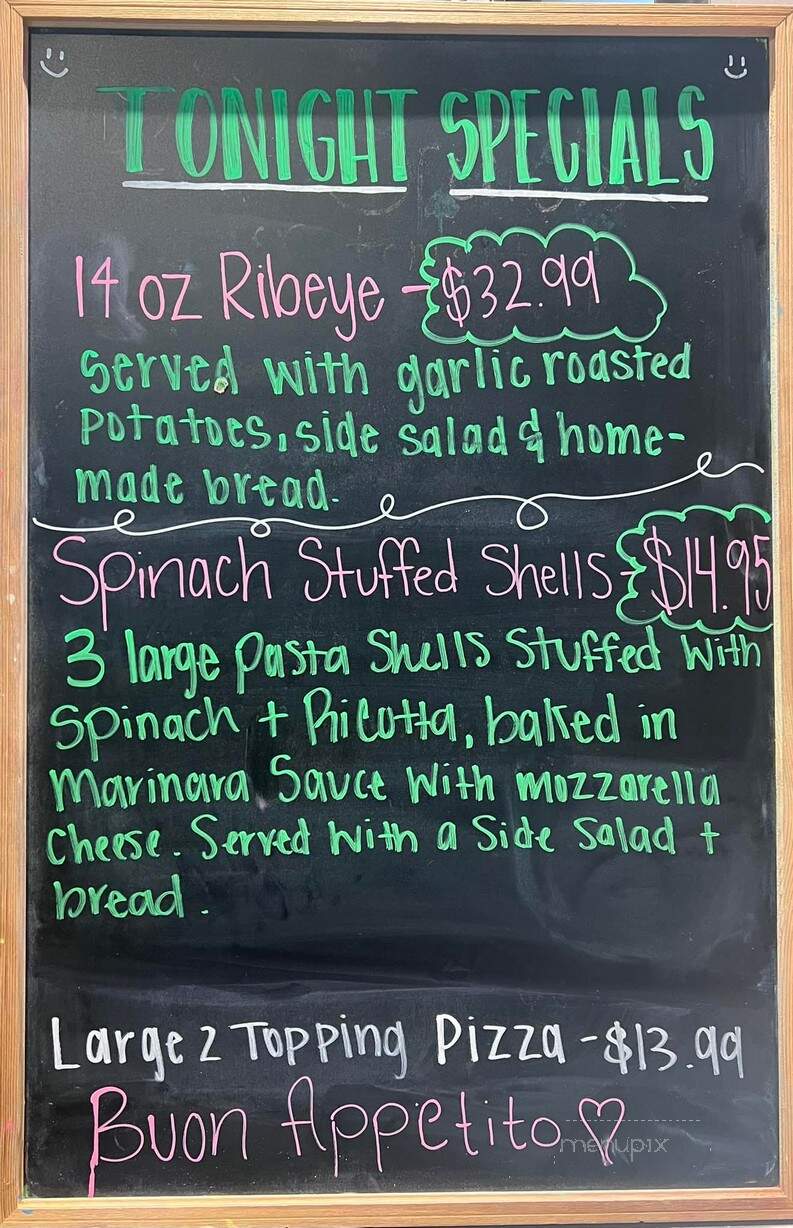 TONIGHT SPECIALS
14 oz Ribeye - $32.99
served with garlic roasted
potatoes, side salad & home-
made bread.
Spinach Stuffed Shells - $14.95
3 large Pasta Shells Stuffed With
Spinach + Ricotta, baked in
Marinara Sauce With mozzarella
Cheese. Served With a Side Salad +
bread.
Large 2 Topping Pizza - $13.99
Buon Appetito
menupix